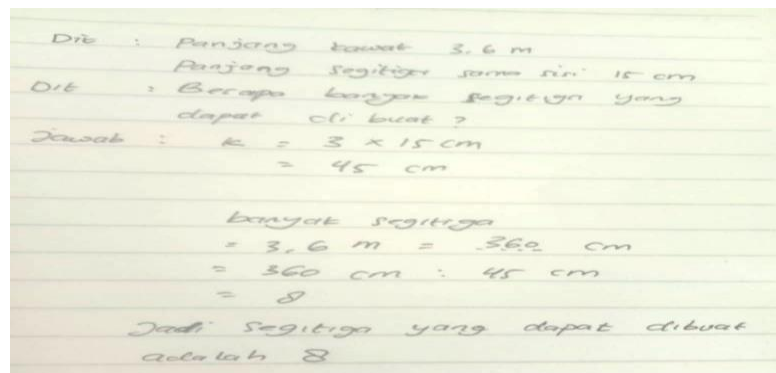 Dit : Panjang kawat 3,6 m
Panjang segitiga sama sisi 15 cm
Dit : Berapa banyak segitiga yang
dapat di buat ?
Jawab : k = 3 x 15 cm
= 45 cm
banyak segitiga
= 3,6 m = 360 cm
= 360 cm : 45 cm
= 8
Jadi segitiga yang dapat dibuat
adalah 8